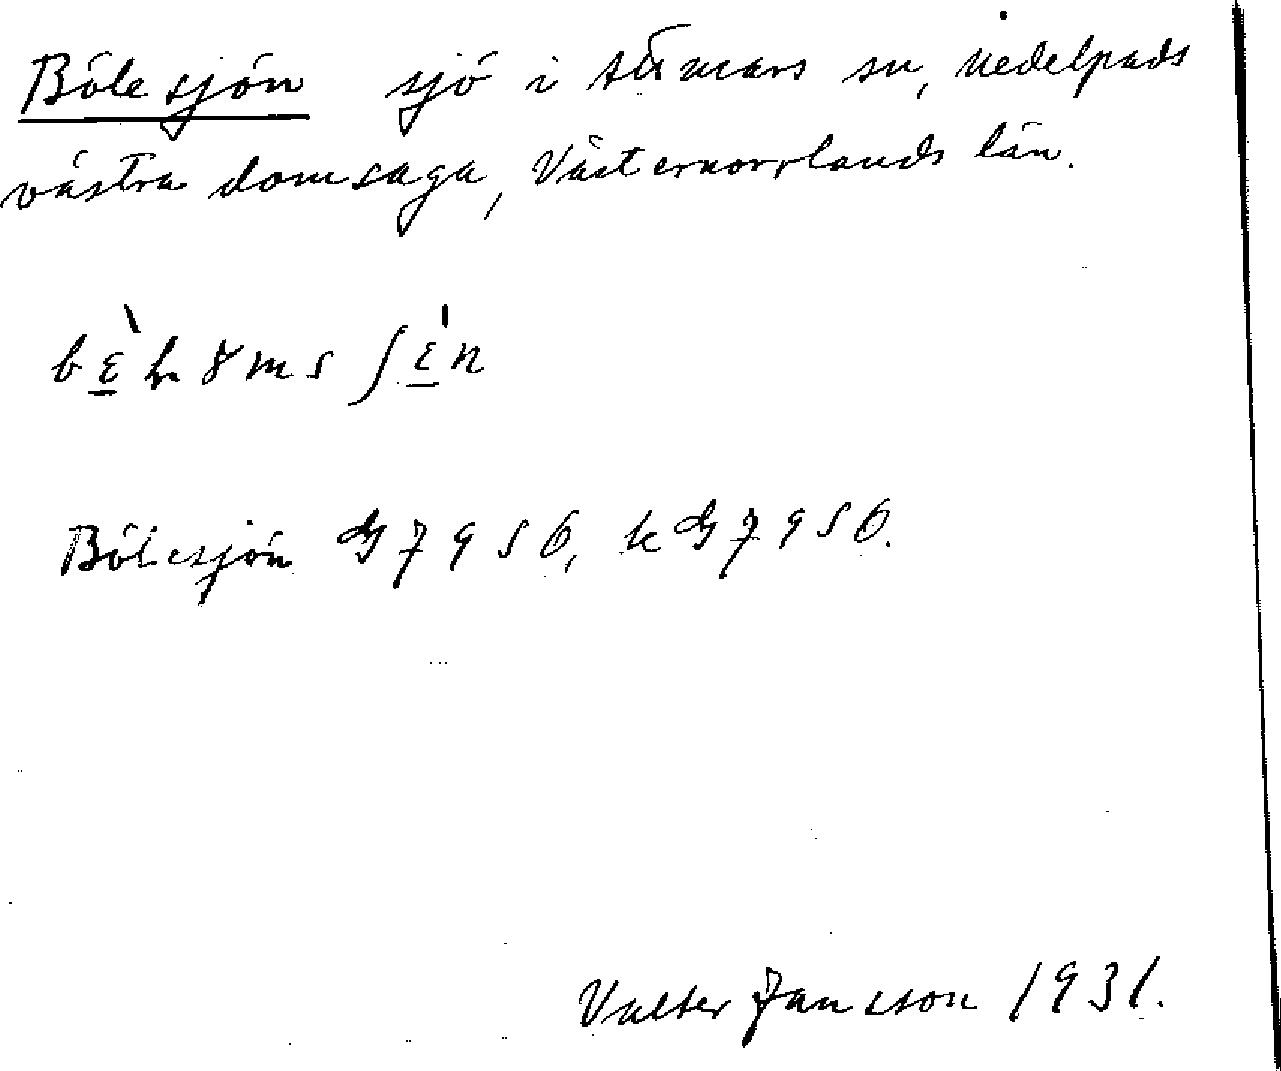 Bölesjön sjö i Stöde sn, Medelpads
västra domsaga, Västernorrlands län.
Bölesjön G 7956, k G 7956.
Valter Jansson 1931.